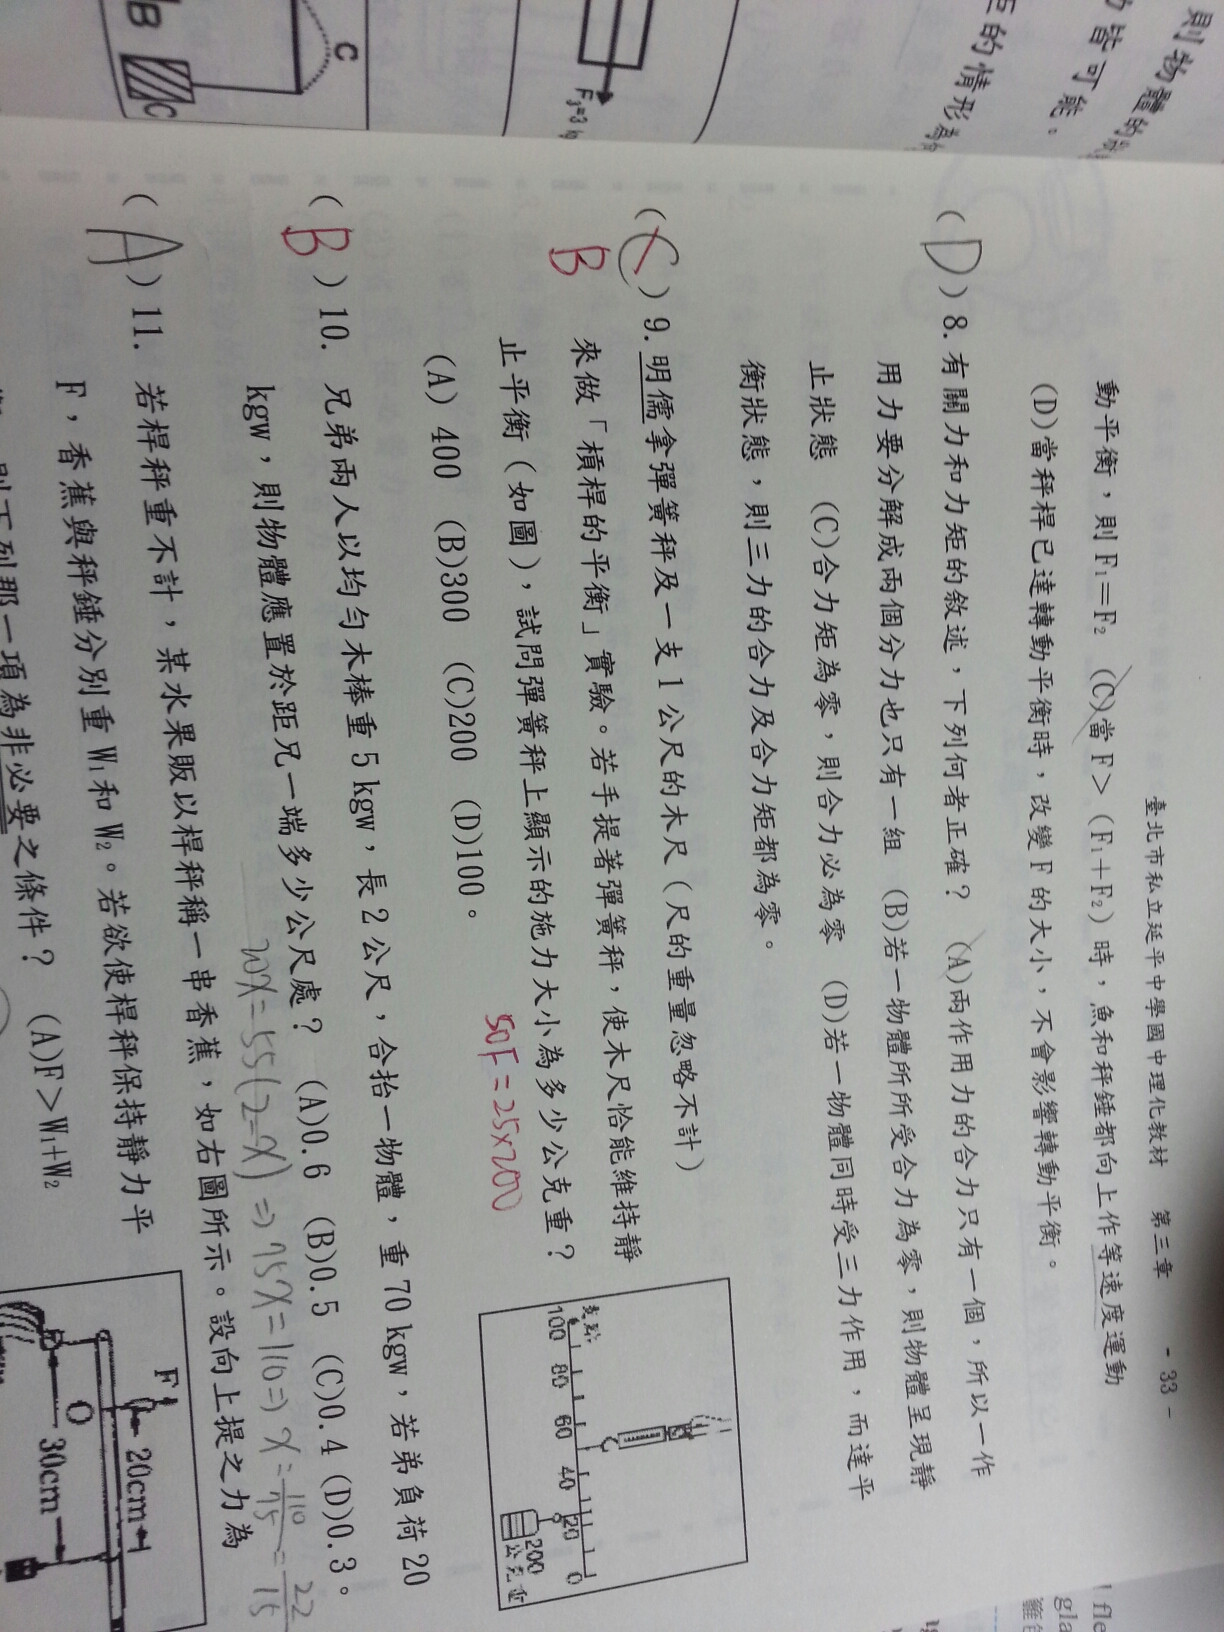 則物體的
力皆可能。
距的情形為
F₃=3
C
B
C
臺北市私立延平中學國中理化教材 第三章 - 33 -
動平衡,則F₁=F₂ (C)當F>(F₁+F₂)時,魚和秤錘都向上作等速度運動
(D)當秤桿已達轉動平衡時,改變F的大小,不會影響轉動平衡。
(D)8.有關力和力矩的敘述,下列何者正確? (A)兩作用力的合力只有一個,所以一作
用力要分解成兩個分力也只有一組 (B)若一物體所所受合力為零,則物體呈現靜
止狀態 (C)合力矩為零,則合力必為零 (D)若一物體同時受三力作用,而達平
衡狀態,則三力的合力及合力矩都為零。
(C)9.明儒拿彈簧秤及一支1公尺的木尺(尺的重量忽略不計)
B
來做「槓桿的平衡」實驗。若手提著彈簧秤,使木尺恰能維持靜
止平衡(如圖),試問彈簧秤上顯示的施力大小為多少公克重?
50F=25×200
(A) 400 (B)300 (C)200 (D)100。
支點
100 80 60 40 20 0
200
公克重
(B)10. 兄弟兩人以均勻木棒重5kgw,長2公尺,合抬一物體,重70kgw,若弟負荷20
kgw,則物體應置於距兄一端多少公尺處? (A)0.6 (B)0.5 (C)0.4 (D)0.3。
20X=55(2-X) ⇒75X=110⇒X=110/75=22/15
(A)11. 若桿秤重不計,某水果販以桿秤稱一串香蕉,如右圖所示。設向上提之力為
F,香蕉與秤錘分別重W₁和W₂。若欲使桿秤保持靜力平
則下列那一項為非必要之條件? (A)F>W₁+W₂
F
20cm
O
30cm